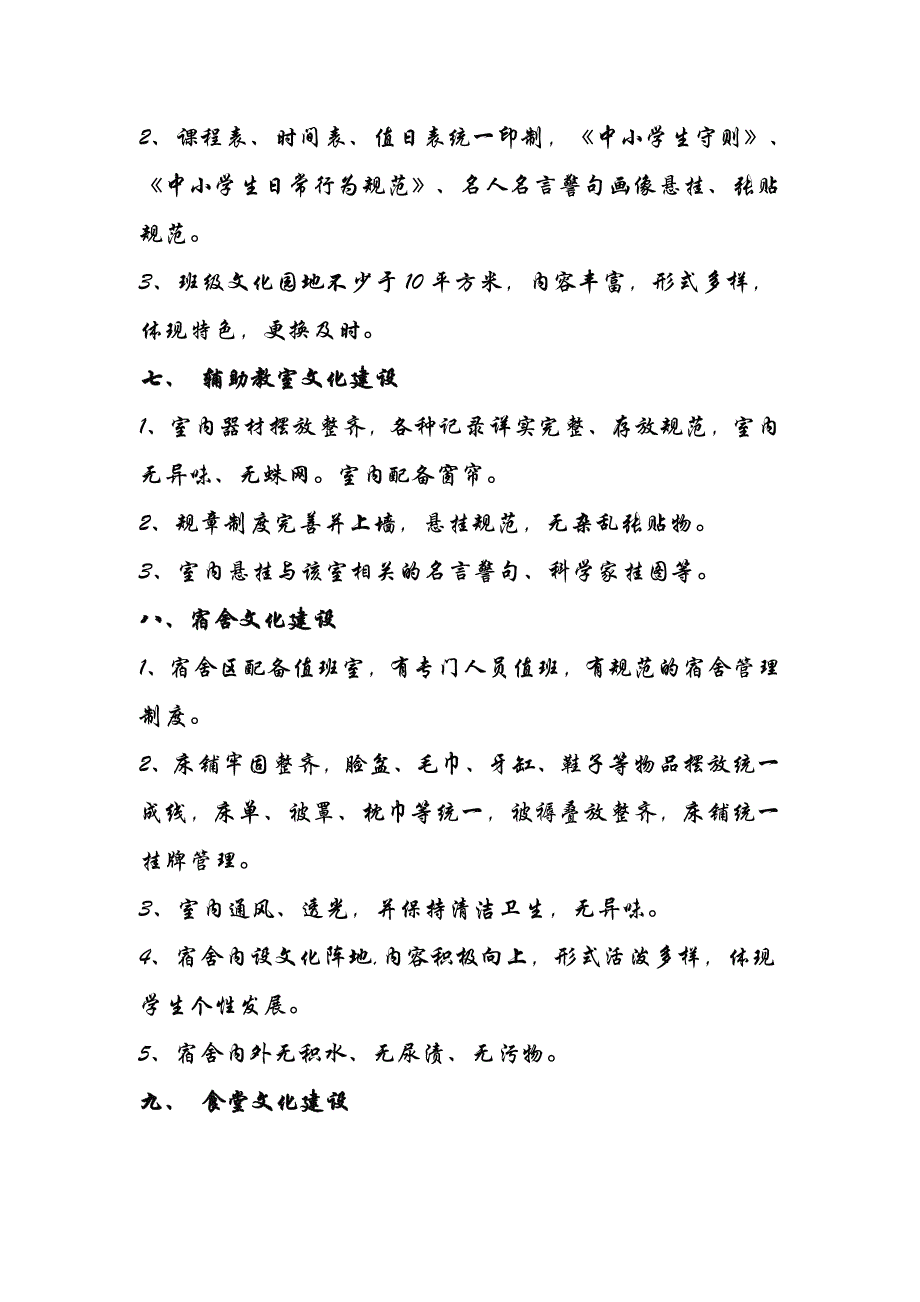 2、课程表、时间表、值日表统一印制，《中小学生守则》、
《中小学生日常行为规范》、名人名言警句画像悬挂、张贴
规范。
3、班级文化园地不少于10平方米，内容丰富，形式多样，
体现特色，更换及时。
七、 辅助教室文化建设
1、室内器材摆放整齐，各种记录详实完整、存放规范，室内
无异味、无蛛网。室内配备窗帘。
2、规章制度完善并上墙，悬挂规范，无杂乱张贴物。
3、室内悬挂与该室相关的名言警句、科学家挂图等。
八、宿舍文化建设
1、宿舍区配备值班室，有专门人员值班，有规范的宿舍管理
制度。
2、床铺牢固整齐，脸盆、毛巾、牙缸、鞋子等物品摆放统一
成线，床单、被罩、枕巾等统一，被褥叠放整齐，床铺统一
挂牌管理。
3、室内通风、透光，并保持清洁卫生，无异味。
4、宿舍内设文化阵地,内容积极向上，形式活泼多样，体现
学生个性发展。
5、宿舍内外无积水、无尿渍、无污物。
九、 食堂文化建设